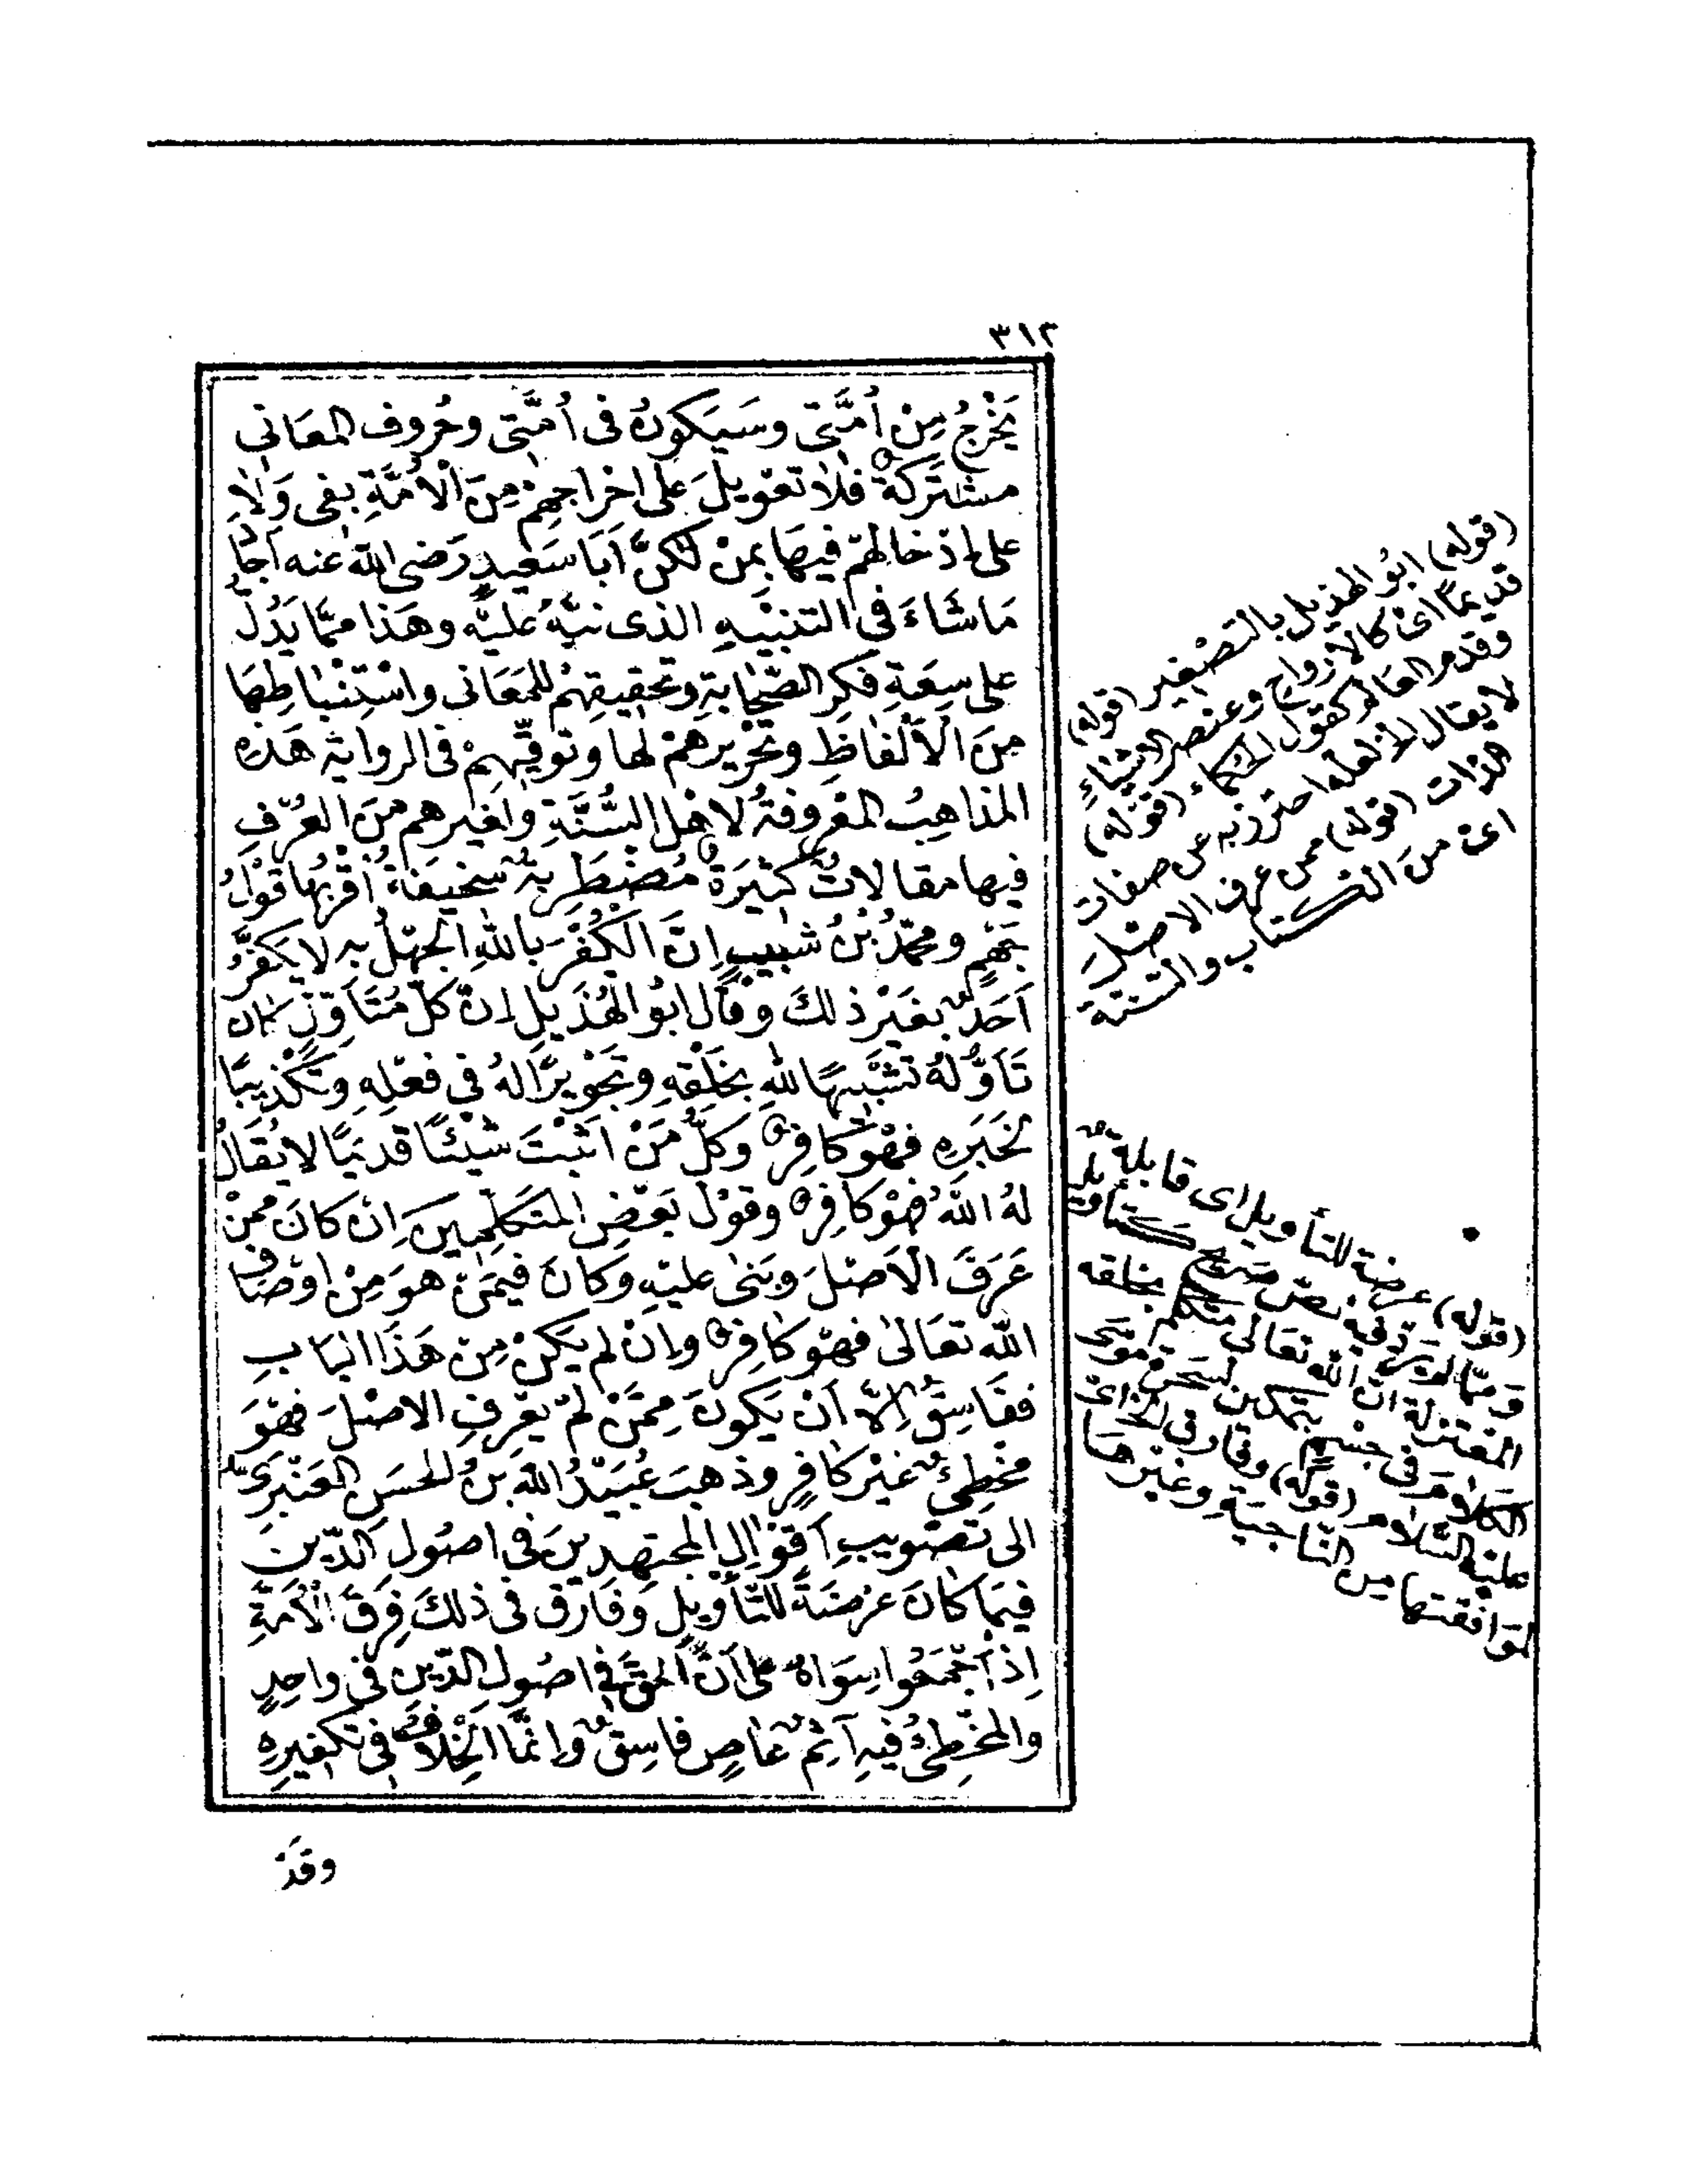 ٣١٢
يَخْرُجُ مِنْ أُمَّتِى وَسَيَكُونُ فى أُمَّتِى وحُرُوف المعَانى
مشتَرَكَةٌ فلا تعْويلَ على اخْرَاجِهِمْ مِنَ الْأُمَّةِ بِفى وَلَا
على ادْخالهم فيهَا بِمِنْ لكنَّ اَبَا سَعيدٍ رَضى الله عنه اَجادَ
مَاشَاءَ فى التنبيهِ الذى نبَّهَ عليْه وهَذا ممَّا يَدُلُّ
على سِعَةِ فكِر الصّحَابةِ وتحقيقِهمْ للمَعَانى واسْتِنْباطِهَا
منَ الْأَلْفَاظِ وتحْرِيرهمْ لهَا وتوقِّيهِمْ فى الرواية هَذه
المذاهِبُ المعْروفةُ لاهْل السُّنَّةِ ولغيرهم منَ الفِرَقِ
فيها مقالاتٌ كثيرَةٌ مُضْطَرِبةٌ سَخيفَةٌ اَقْرَبُها قوْلُ
جَهْمٍ ومحمّدُ بْنُ شبيبٍ اِنَّ الكُفْرَ باللهِ الجَهْلُ به لا يَكفُرُ
اَحَدٌ بغَيْرِ ذلكَ وقال ابُو الهُذَيلِ اِنّ كلّ مُتَأوّلٍ كان
تَأوُّلُهُ تَشْبِيهًا للهِ بِخَلْقِهِ وتَجْوِيرًا لهُ فى فعْلِهِ وتَكْذِيبًا
لخَبَرِهِ فهْوَ كافِرٌ وَكلُّ مَنْ اَثْبَتَ شيْئًا قديمًا لا يُقَالُ
لهُ اللهُ فهْوَ كافِرٌ وقوْل بَعْضِ المتَكَلِّمِينَ اِنْ كانَ ممنْ
عَرَفَ الْاَصْلَ وبَنىٰ عليْهِ وَكانَ فيمَا هوَ مِنْ اوْصَافِ
الله تعَالىٰ فهْوَ كافِرٌ واِنْ لم يَكنْ مِنْ هَذَا البَابِ
ففَاسِقٌ اِلَّا اَنْ يَكونَ مِمَّنْ لمْ يعْرِفِ الاصْلَ فهْوَ
مخْطِئٌ غيْرُ كافِرٍ وذهبَ عُبَيْدُ اللهِ بْنُ الحسَنِ العَنْبَرىُّ
الى تَصْويبِ اَقْوَالِ المجتهِدِينَ فى اصُولِ الدّينِ
فيمَا كانَ عُرْضَةً للتّأويلِ وَفَارَقَ فى ذلكَ فِرَقَ الْأُمَّةِ
اِذْ اَجْمَعُوا سِوَاهُ على اَنَّ الحقَّ فى اصُولِ الدّينِ فى واحِدٍ
والمخْطِئُ فيهِ آثِمٌ عَاصٍ فاسِقٌ وانَّمَا الخِلَافُ فى تكفيرِهِ
وقَدْ
(قوله) ابُو الهذيل بالتصْغير (قوله)
قديمًا اىْ كالارْواح وعنصر الاشياءِ
وقدم العَالم كقول الحكماء (قوله)
لا يقال له الله احترز به عن صفات
الذات (قوله) ممن عرف الاصْل
اىْ منَ الكتاب والسنة
(قوله) عرضة للتأويل اى قابلةٌ
وممّا لم يرد فيه نصّ صريح كتأويل
المعْتزلة انّ الله تعَالى متكلم بخلقه
الكلام فى جسْمٍ
عليْه السَّلامر (قوله) وفارق
لموافقتها من النّاجيةِ وغيْرهَا